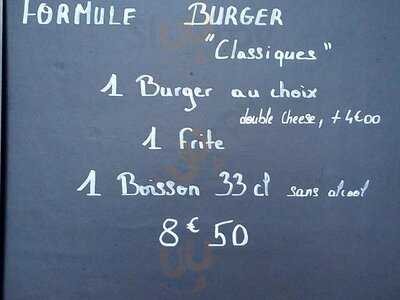 FORMULE BURGER
"Classiques"
1 Burger au choix
double cheese, +4€00
1 Frite
1 Boisson 33 cl sans alcool
8€50